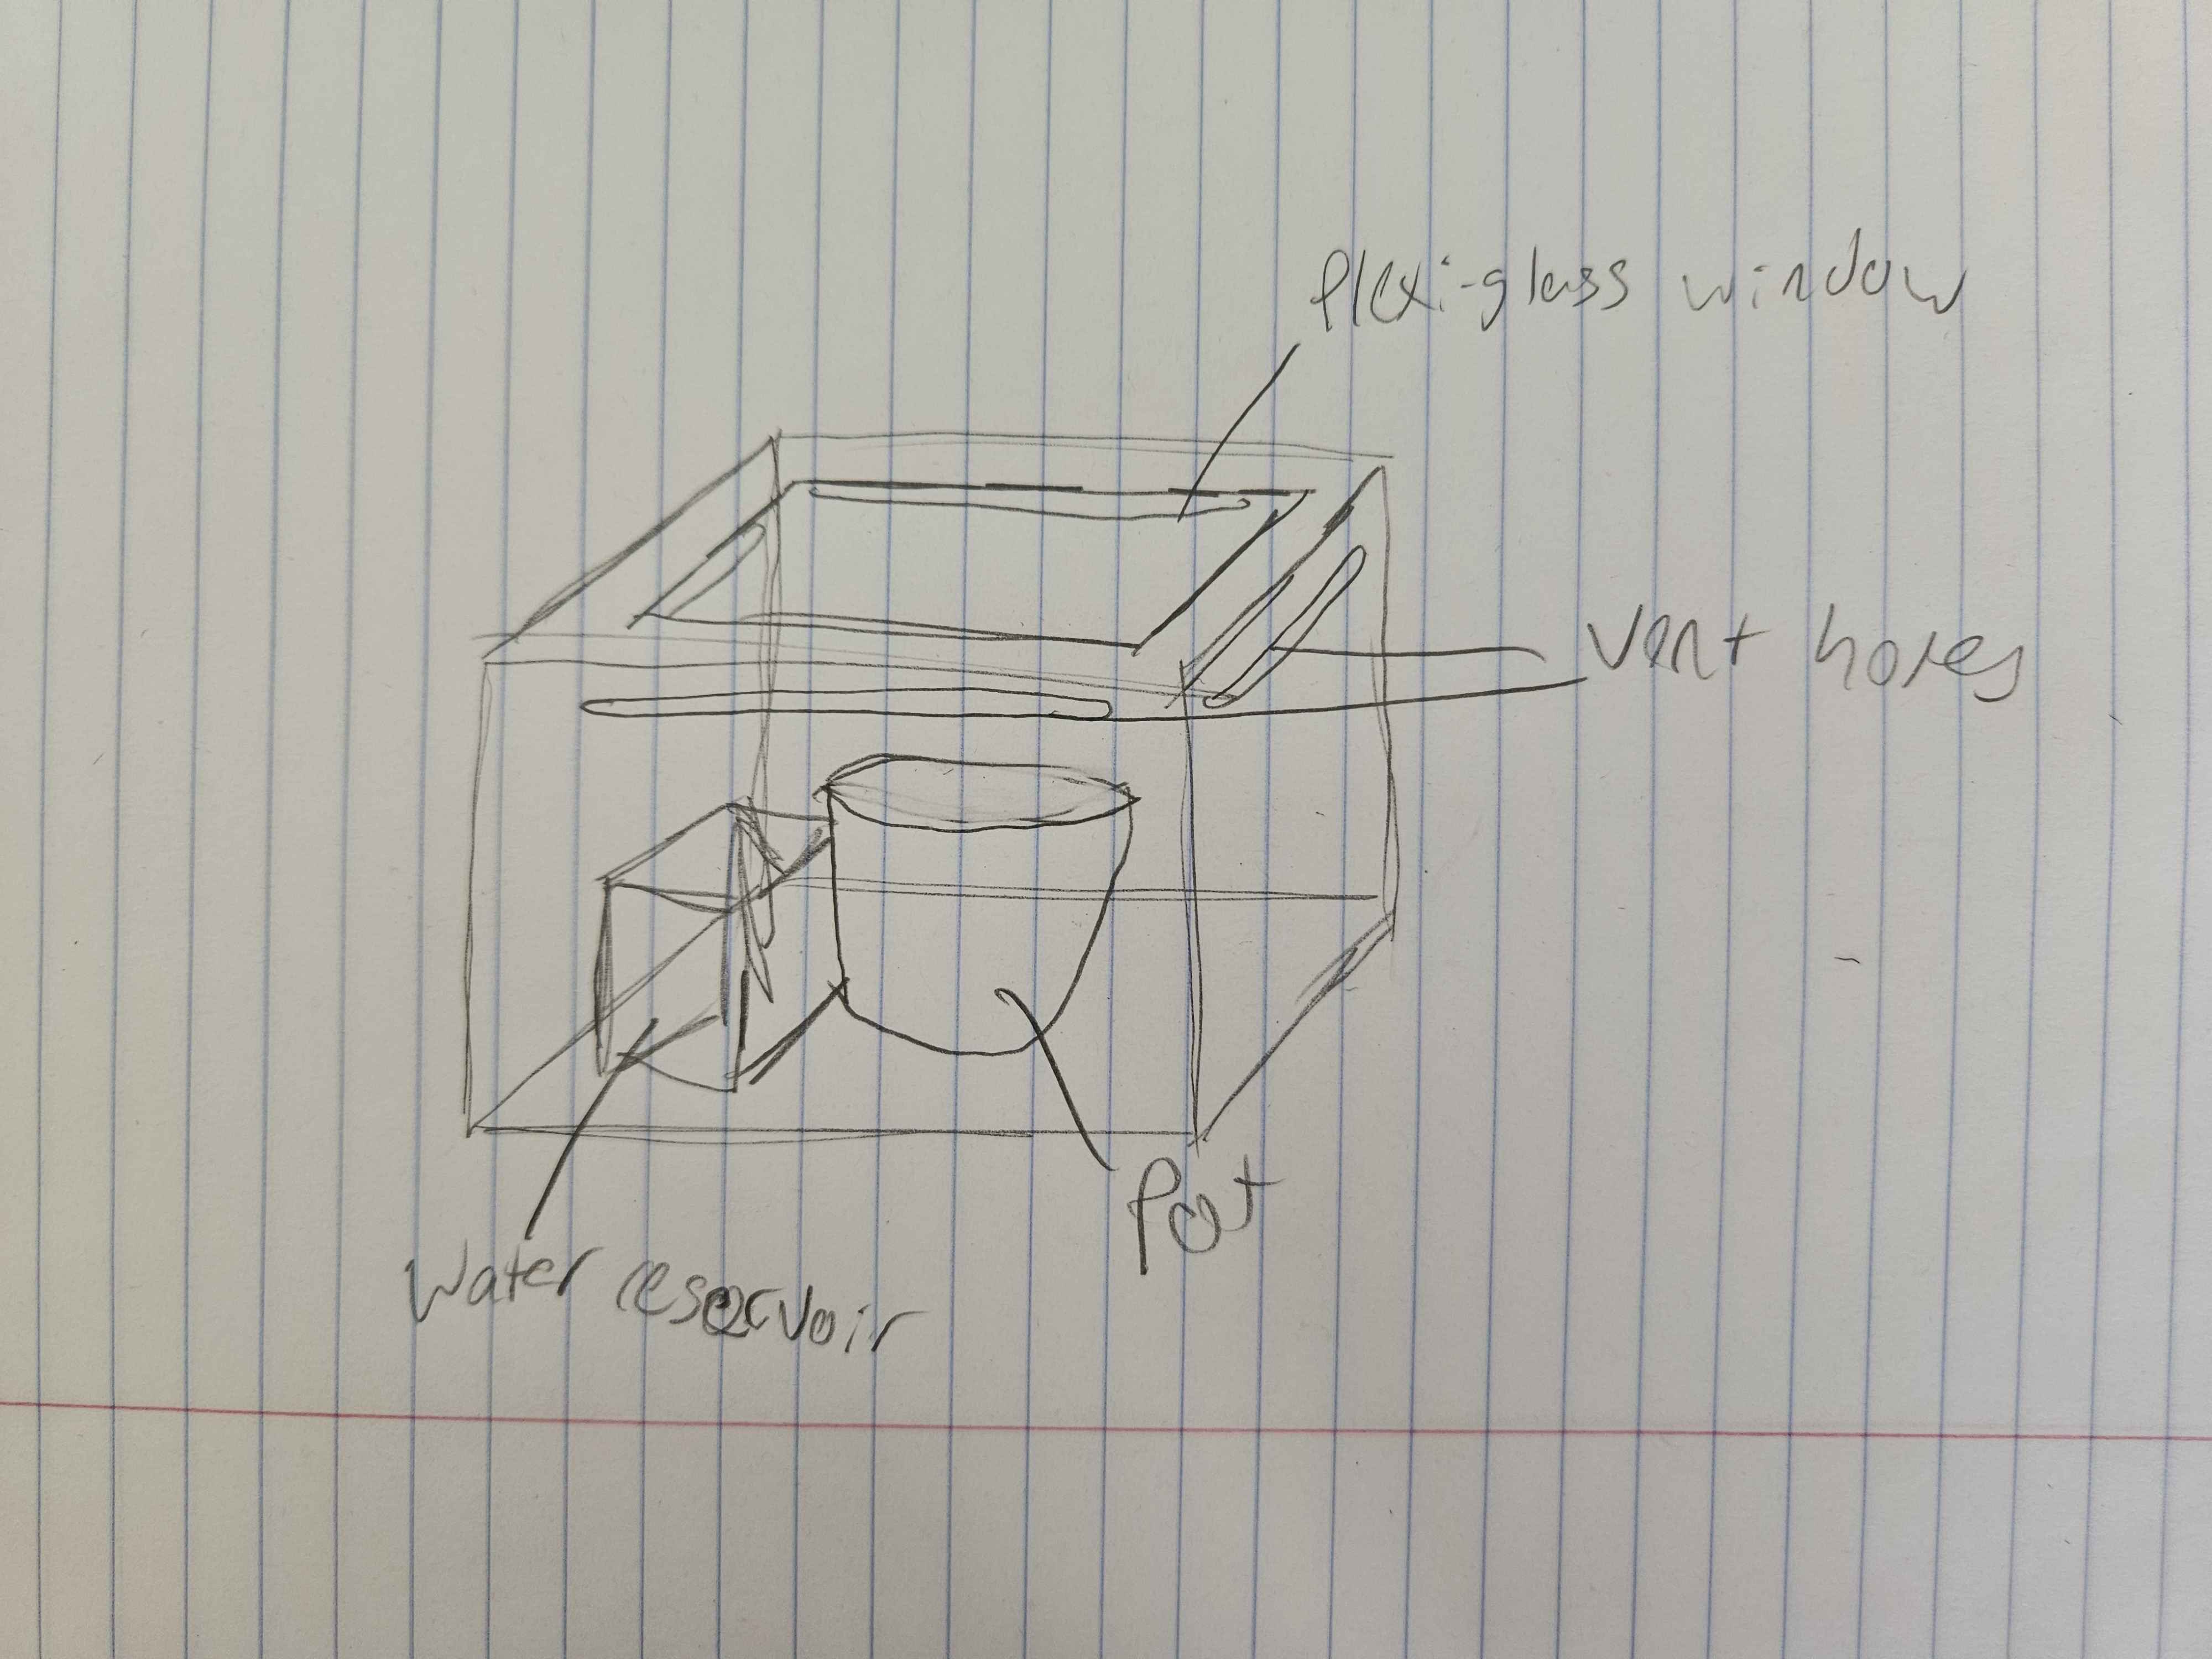 Plexi-glass window
Vent holes
Pot
Water reservoir